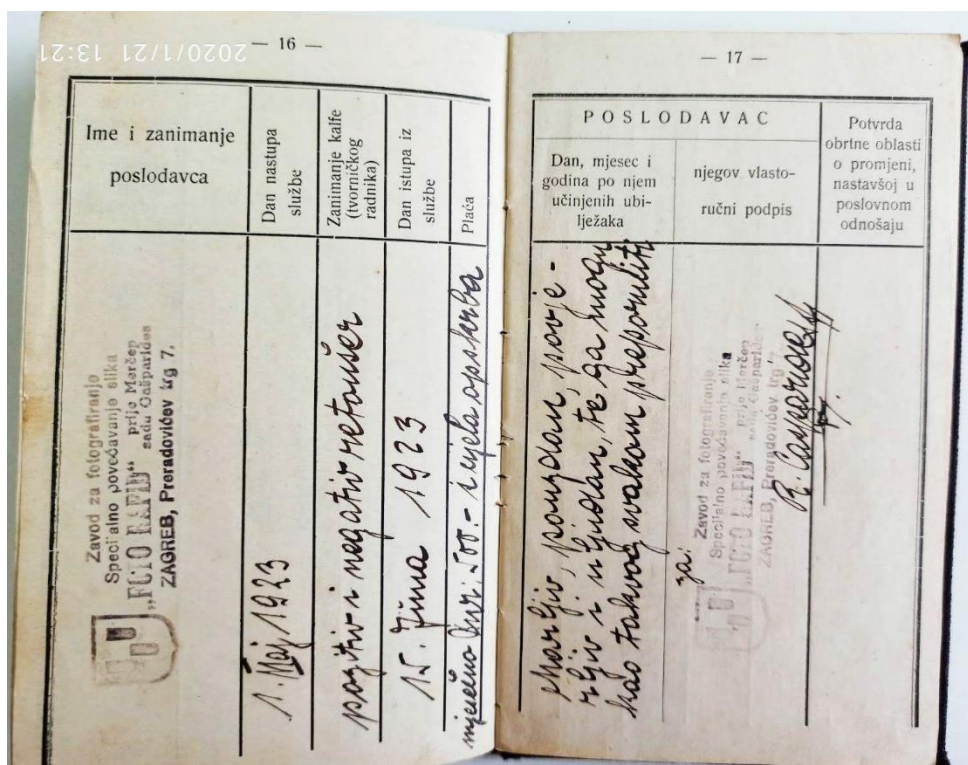 2020/1/21 13:21
— 16 —
Ime i zanimanje
poslodavca
Dan nastupa
službe
Zanimanje kalfe
(tvorničkog
radnika)
Dan istupa iz
službe
Plaća
Zavod za fotografiranje
Specijalno povećavanje slika
„FOTO RAPID“ prije Merćep
sada Gašparides
ZAGREB, Preradovićev trg 7.
1. Maj 1923
pozitiv i negativ retoušer
15. Juna 1923
mjesečno 500.- i cijela opskrba
— 17 —
POSLODAVAC
Dan, mjesec i
godina po njem
učinjenih ubi-
lježaka
njegov vlasto-
ručni podpis
Potvrda
obrtne oblasti
o promjeni,
nastavšoj u
poslovnom
odnošaju
Marljiv, pouzdan, povje-
rljiv i uljudan, te ga mogu
kao takvog svakom preporučiti
za:
Zavod za fotografiranje
Specijalno povećavanje slika
„FOTO RAPID“ prije Merćep
sada Gašparides
ZAGREB, Preradovićev trg 7.
R.